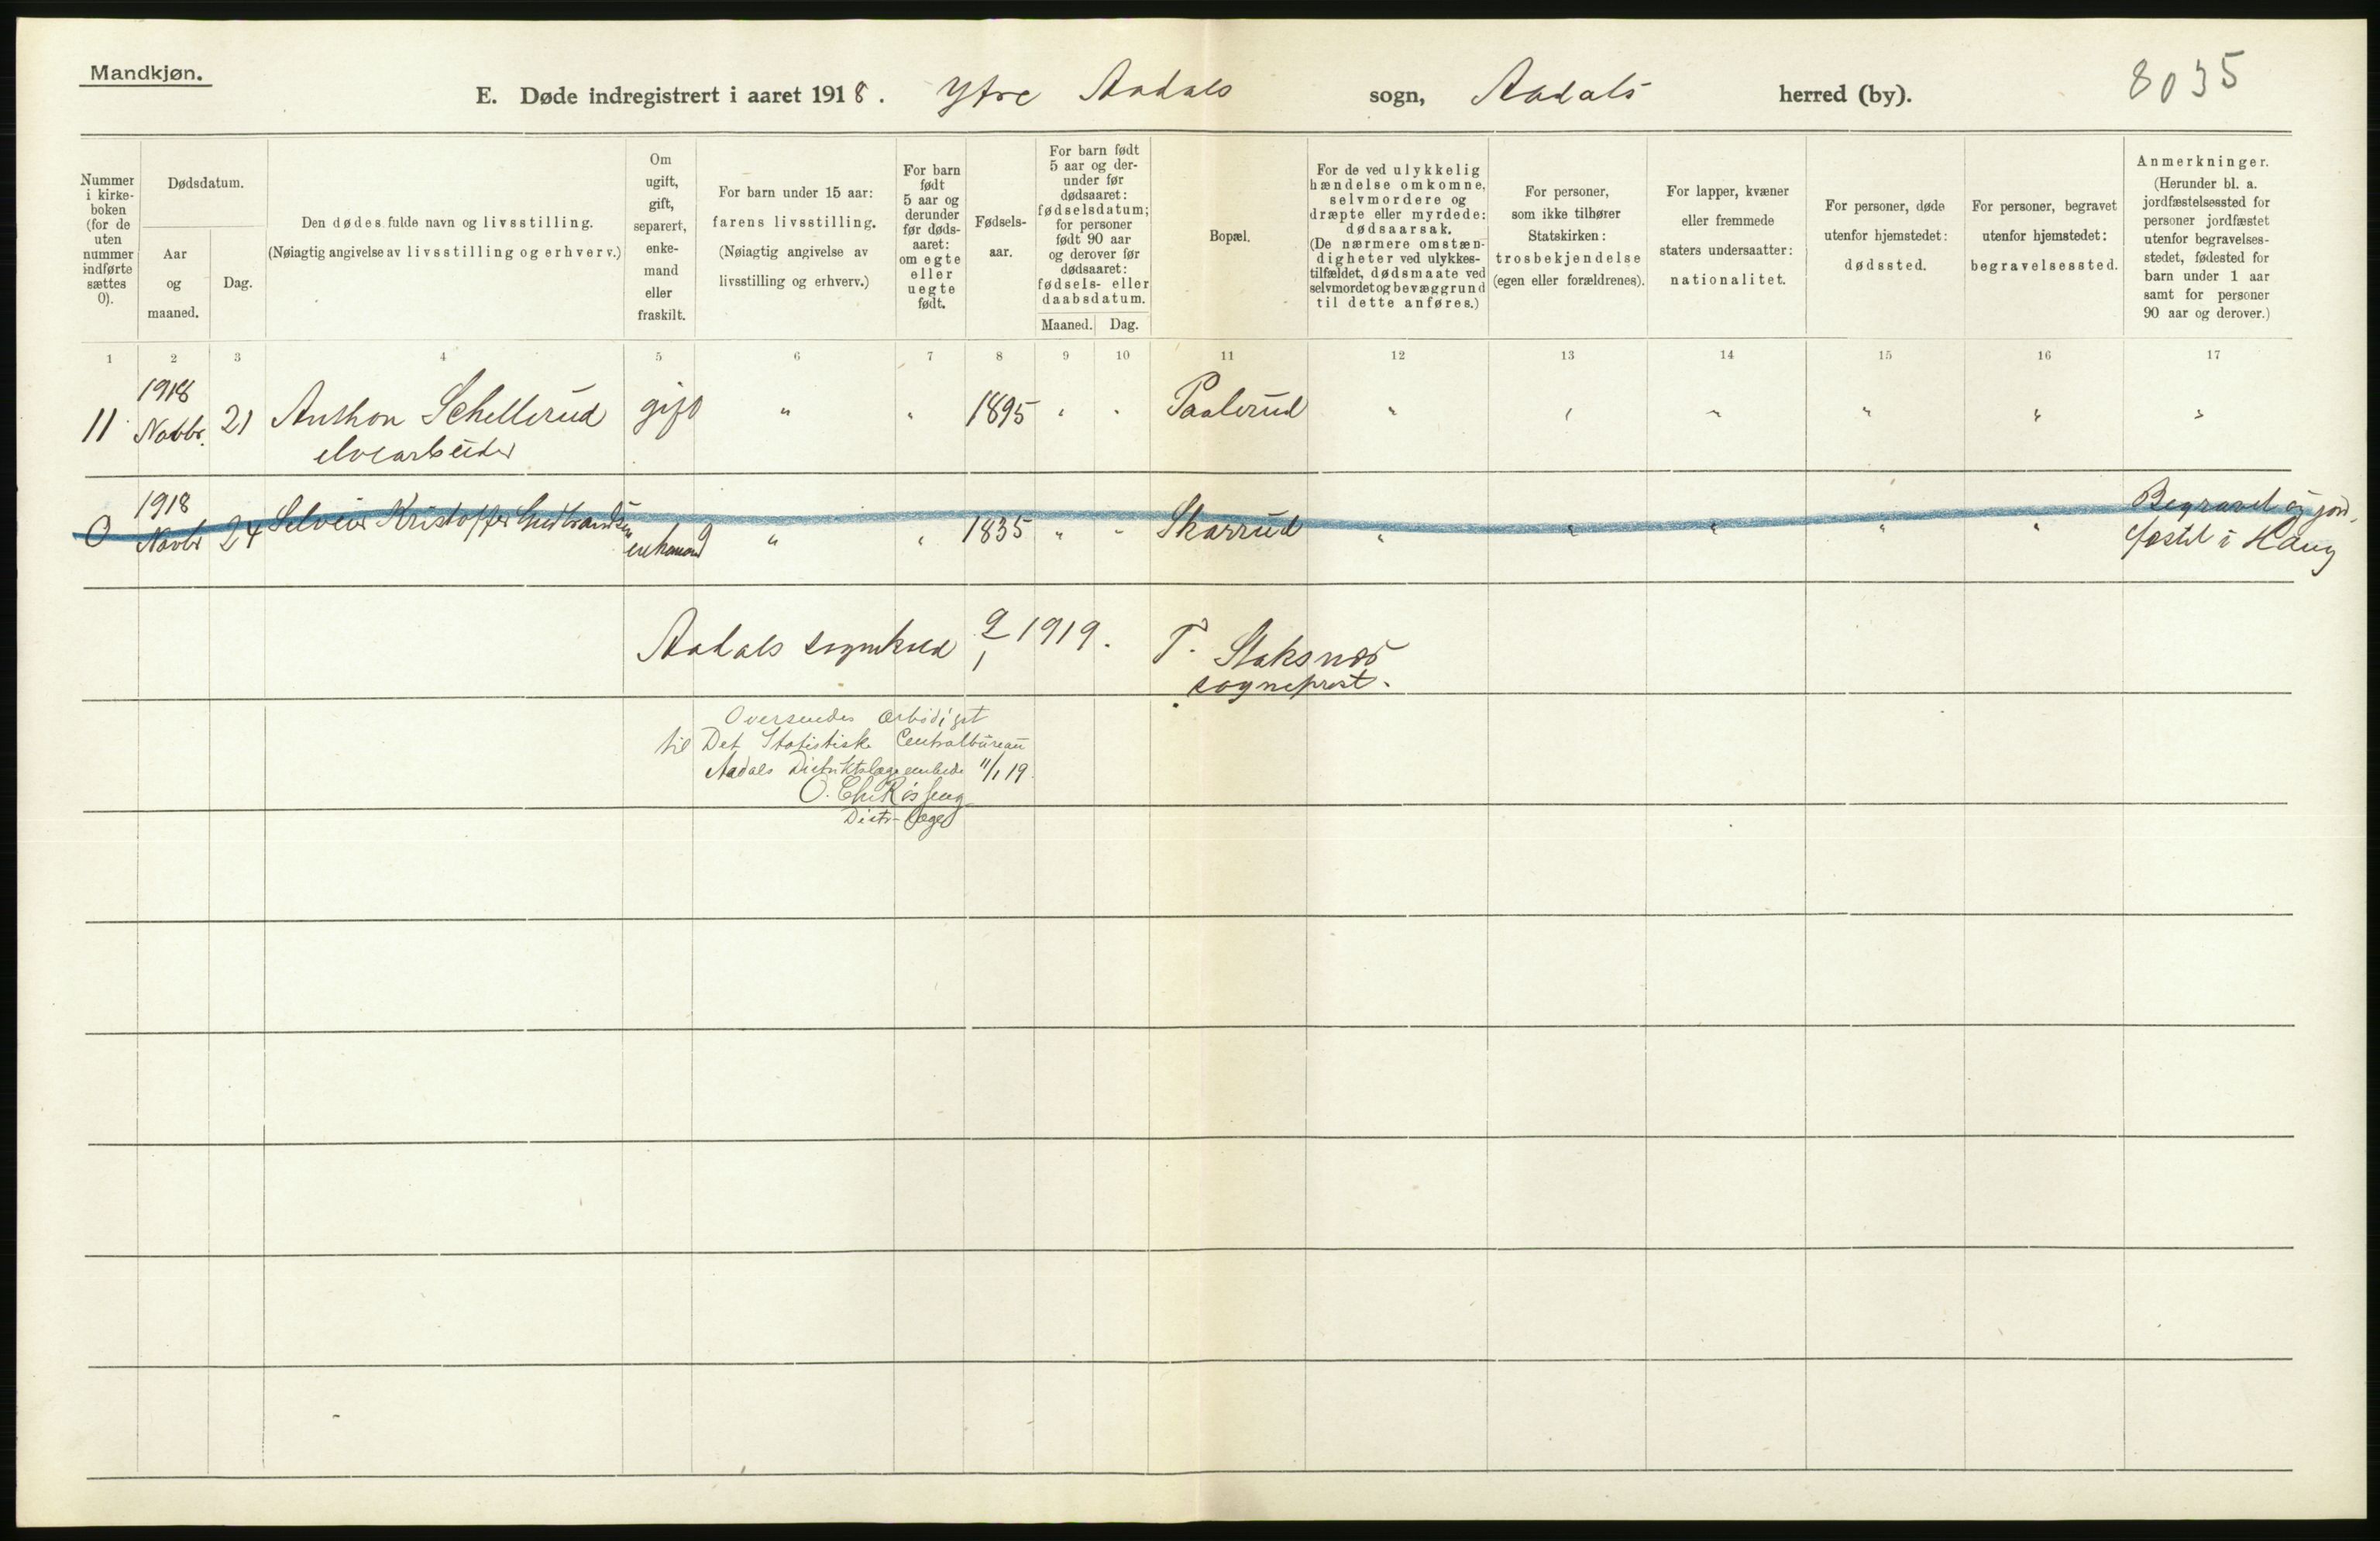 Mandkjøn.
E. Døde indregistrert i aaret 1918. Ytre Aadals sogn, Aadals herred (by).
8035
Nummer i kirke-boken (for de uten nummer indførte sættes 0).
Dødsdatum.
Aar og maaned.
Dag.
Den dødes fulde navn og livsstilling.
(Nøiagtig angivelse av livsstilling og erhverv.)
Om ugift, gift, separert, enke-mand eller fraskilt.
For barn under 15 aar:
farens livsstilling.
(Nøiagtig angivelse av livsstilling og erhverv.)
For barn født 5 aar og derunder før døds-aaret: om egte eller uegte født.
Fødsels-aar.
For barn født 5 aar og der-under før dødsaaret: fødselsdatum; for personer født 90 aar og derover før dødsaaret: fødsels- eller daabsdatum.
Maaned. Dag.
Bopæl.
For de ved ulykkelig hændelse omkomne, selvmordere og dræpte eller myrdede: dødsaarsak.
(De nærmere omstæn-digheter ved ulykkes-tilfældet, dødsmaate ved selvmordet og bevæggrund til dette anføres.)
For personer, som ikke tilhører Statskirken: trosbekjendelse (egen eller forældrenes).
For lapper, kvæner eller fremmede staters undersaatter: nationalitet.
For personer, døde utenfor hjemstedet: dødssted.
For personer, begravet utenfor hjemstedet: begravelsessted.
Anmerkninger.
(Herunder bl. a. jordfæstelsessted for personer jordfæstet utenfor begravelses-stedet, fødested for barn under 1 aar samt for personer 90 aar og derover.)
1 2 3 4 5 6 7 8 9 10 11 12 13 14 15 16 17
1918
11 Novbr. 21 Anthon Schellerud gift " " 1895 " " Paalerud " " " " " "
elvearbeider
1918
0 Novbr 24 Selveier Kristoffer Gudbrandsen enkemand " " 1835 " " Skarrud " " " " " Begravet og jord-
fæstet i Haug
Aadals sognekald 9/1 1919. T. Staksnæs
sogneprest.
Oversendes ærbødigst
til Det Statistiske Centralbureau
Aadals Distriktslægeembede 11/1 19.
O. Chr.
Distr-læge